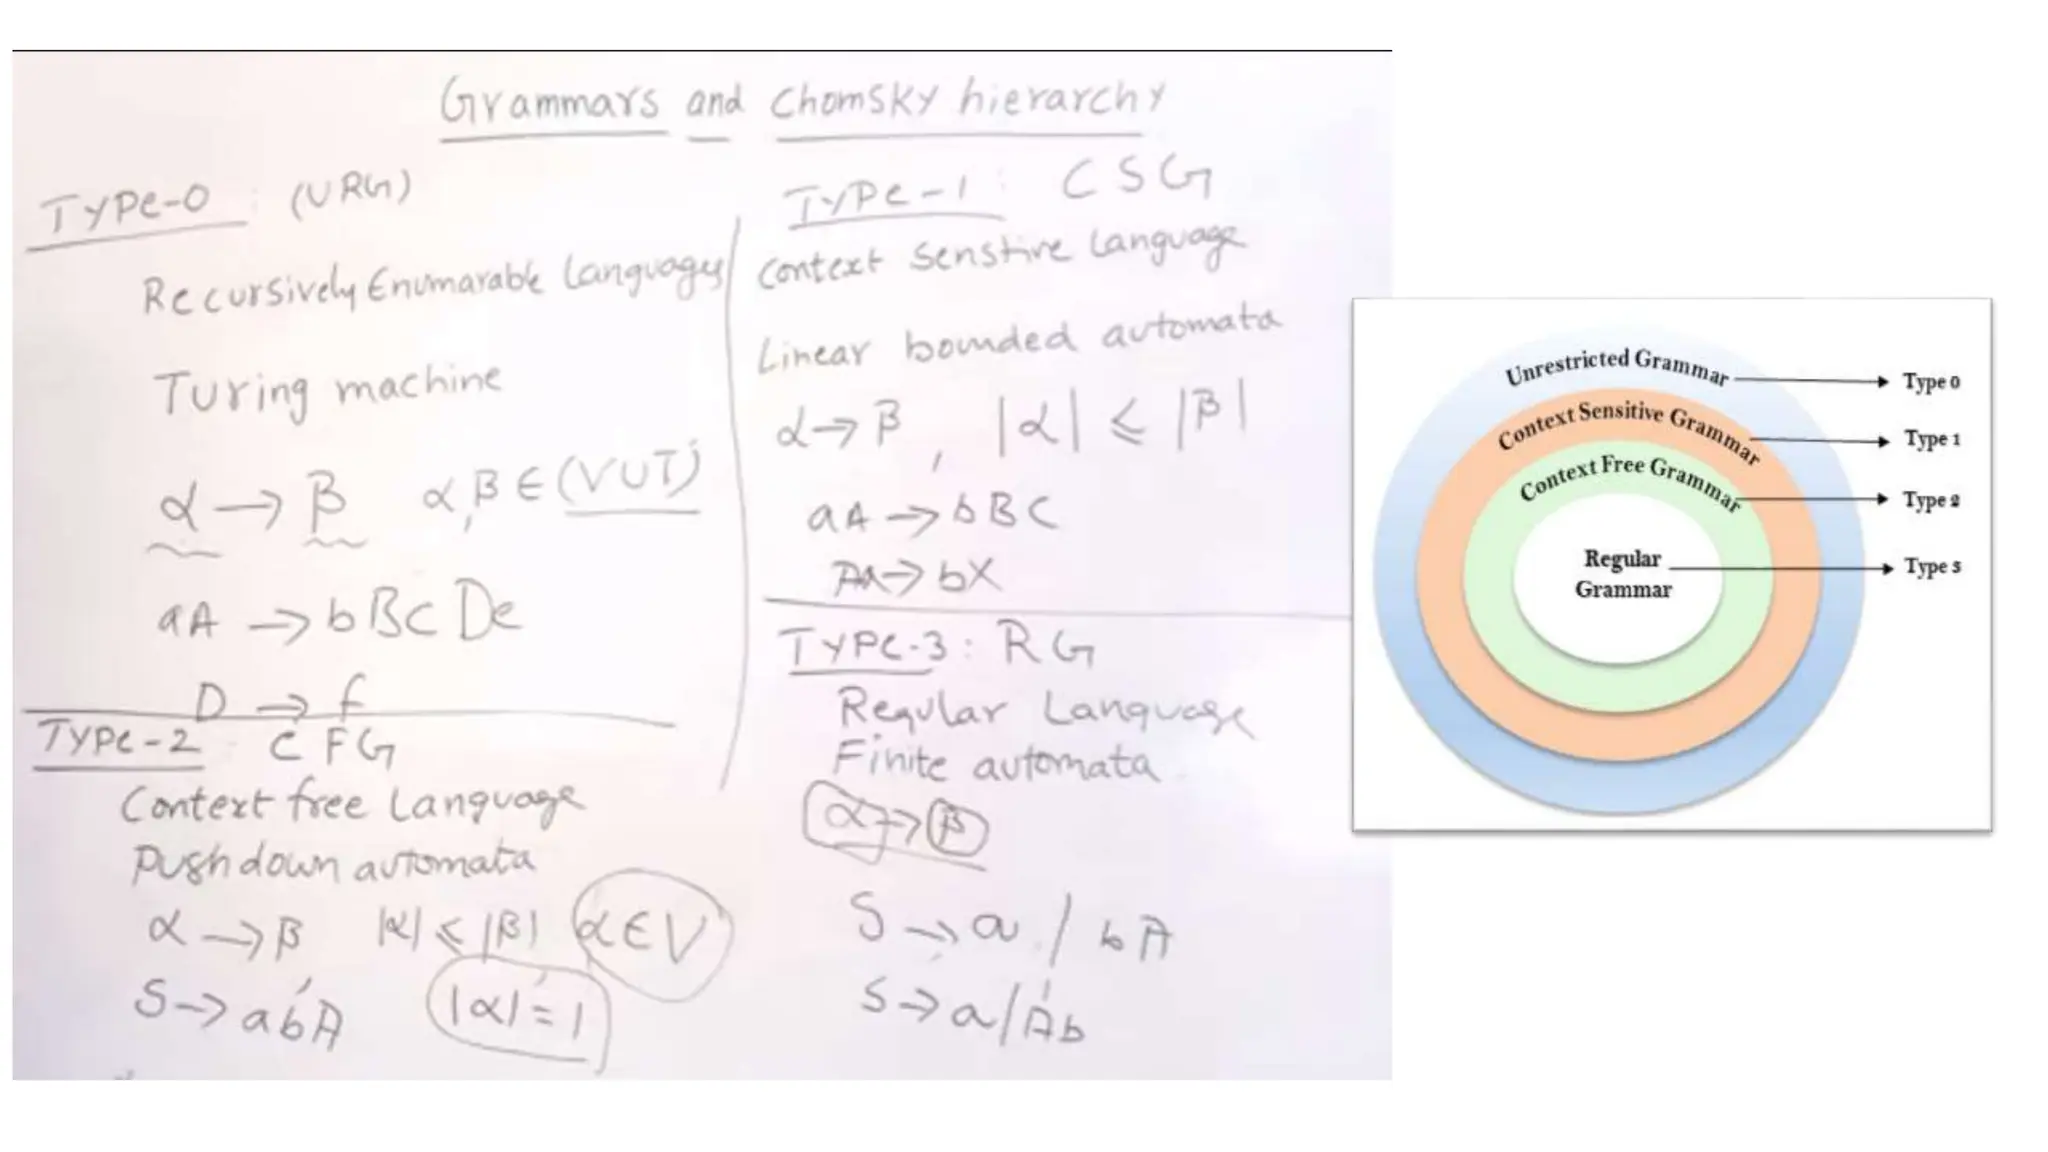 Grammars and Chomsky hierarchy
Type-0 : (URG)
Recursively Enumarable Languages
Turing machine
α → β α, β ∈ (VUT)
aA → bBCDe
D → f
Type-1 : CSG
Context Senstive Language
Linear bounded automata
α → β, |α| ⩽ |β|
aA → bBC
AA → bX
Type-2 : CFG
Context free Language
Pushdown automata
α → β |α| ⩽ |β| α ∈ V
S → abA |α| = 1
Type-3 : RG
Regular Language
Finite automata
α → β
S → a / bA
S → a / Ab
Unrestricted Grammar
Type 0
Context Sensitive Grammar
Type 1
Context Free Grammar
Type 2
Regular
Grammar
Type 3